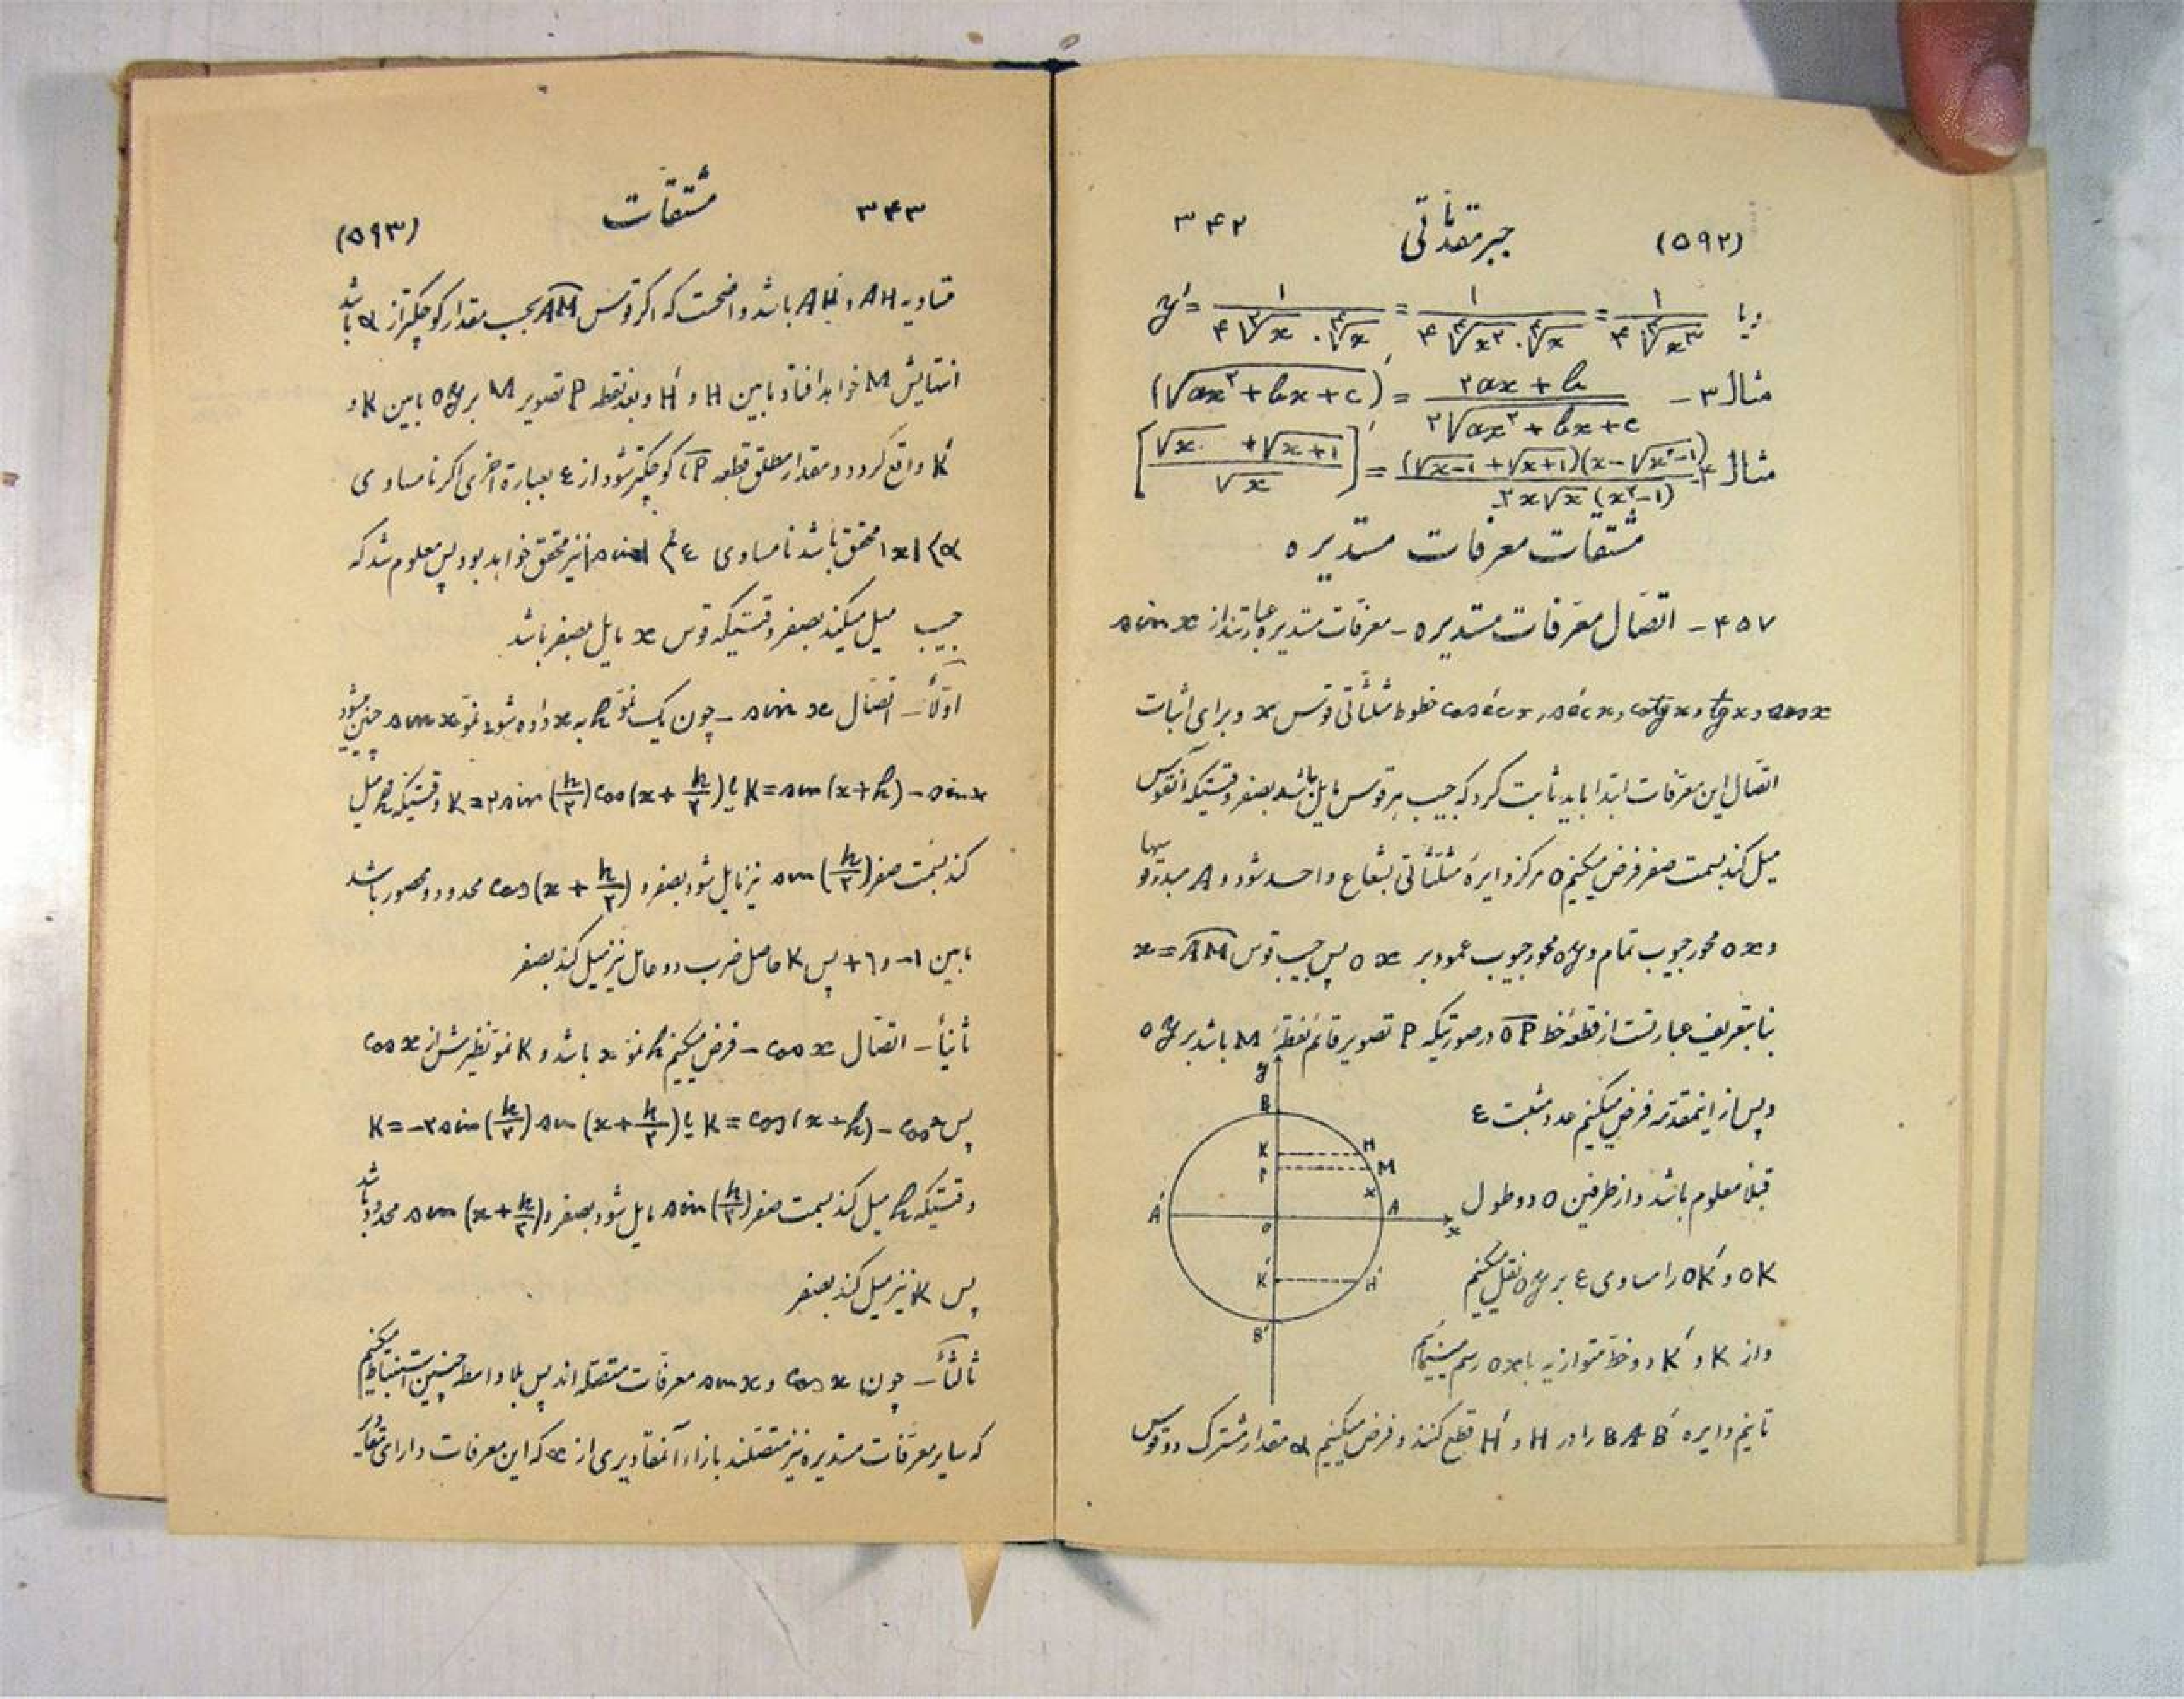 (۵۹۲) جبر مقدماتی ۳۴۲
ویا y′ = ۱/(۴√x · ∜x) = ۱/(۴ ∜x² · ∜x) = ۱/(۴ ∜x³)
مثال ۳ – (√(ax² + bx + c))′ = (۲ax + b)/(۲√(ax² + bx + c))
مثال ۴ [(√x + √(x+1))/√x]′ = (√(x-1) + √(x+1))(x - √(x²-1))/(۲x√x (x²-1))
مشتقات معرفات مستدیره
۴۵۷ – اتصال معرفات مستدیره – معرفات مستدیره عبارتند از sin x
و cos x و tg x و cotg x و séc x و coséc x خطوط مثلثاتی قوس x و برای اثبات
اتصال این معرفات ابتدا باید ثابت کرد که جیب هر قوس مایل باشد بصفر وقتیکه آنقوس
میل کند بسمت صفر فرض میکنیم O مرکز دایرهٔ مثلثاتی بشعاع واحد شود و A مبدء قوسها
و ox محور جیوب تمام و oy محور جیوب عمود بر ox پس جیب قوس AM = x
بنا بتعریف عبارتست از قطعه خط OP در صورتیکه P تصویر قائم نقطهٔ M باشد بر oy
و پس از اینمقدمه فرض میکنیم عدد مثبت ε
قبلاً معلوم باشد و از طرفین O دو طول
OK و OK′ را مساوی ε بر oy نقل میکنیم
و از K و K′ دو خط متوازیه با ox رسم مینمائیم
تا نیم دایره BAB′ را در H و H′ قطع کنند و فرض میکنیم α مقدار مشترک دو قوس
y
B
K H
P M
x
A′ O A x
K′ H′
B′
۳۴۳ مشتقات (۵۹۳)
متساویه AH و AH′ باشد واضحست که اگر قوس AM بحسب مقدار کوچکتر از α باشد
انتهایش M خواهد افتاد ما بین H و H′ و بعد نقطه P تصویر M بر oy ما بین K و
K′ واقع گردد و مقدار مطلق قطعه OP کوچکتر شود از ε بعبارة اخری اگر نامساوی
|x| < α محقق باشد نامساوی |sin x| < ε نیز محقق خواهد بود پس معلوم شد که
جیب میل میکند بصفر وقتیکه قوس x مایل بصفر باشد
اولاً – اتصال sin x – چون یک نمو h به x داده شود نمو sin x چنین میشود
K = sin(x+h) - sin x یا K = ۲ sin(h/۲) cos(x + h/۲) وقتیکه h میل
کند بسمت صفر sin(h/۲) نیز مایل شود بصفر و cos(x + h/۲) محدود و محصور باشد
ما بین ۱- و ۱+ پس K حاصل ضرب دو عامل نیز میل کند بصفر
ثانیاً – اتصال cos x – فرض میکنیم h نمو x باشد و K نمو نظیرش از cos x
پس K = cos(x+h) - cos x یا K = -۲ sin(h/۲) sin(x + h/۲)
وقتیکه h میل کند بسمت صفر sin(h/۲) مایل شود بصفر و sin(x + h/۲) محدود باشد
پس K نیز میل کند بصفر
ثالثاً – چون cos x و sin x معرفات متصله اند پس بلاواسطه چنین استنباط میکنیم
که سایر معرفات مستدیره نیز متصلند بازاء آنمقادیری از x که این معرفات دارای مقادیر